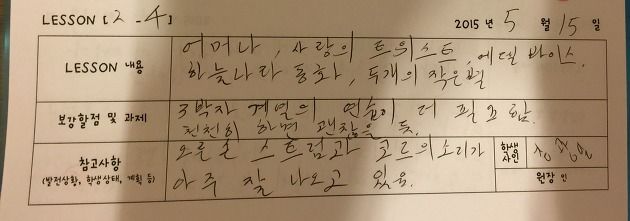 LESSON [2-4] 2015 년 5 월 15 일
LESSON 내용
어머나, 사랑의 트위스트, 에델 바이스,
하늘나라 동화, 두개의 작은별
보강할점 및 과제
3박자 계열의 연습이 더 필요함.
천천히 하면 괜찮을 듯.
참고사항
(발전상황, 학생상태, 계획 등)
오른손 스트럼과 코드의소리가
아주 잘 나오고 있음.
학생
사인
원장 인